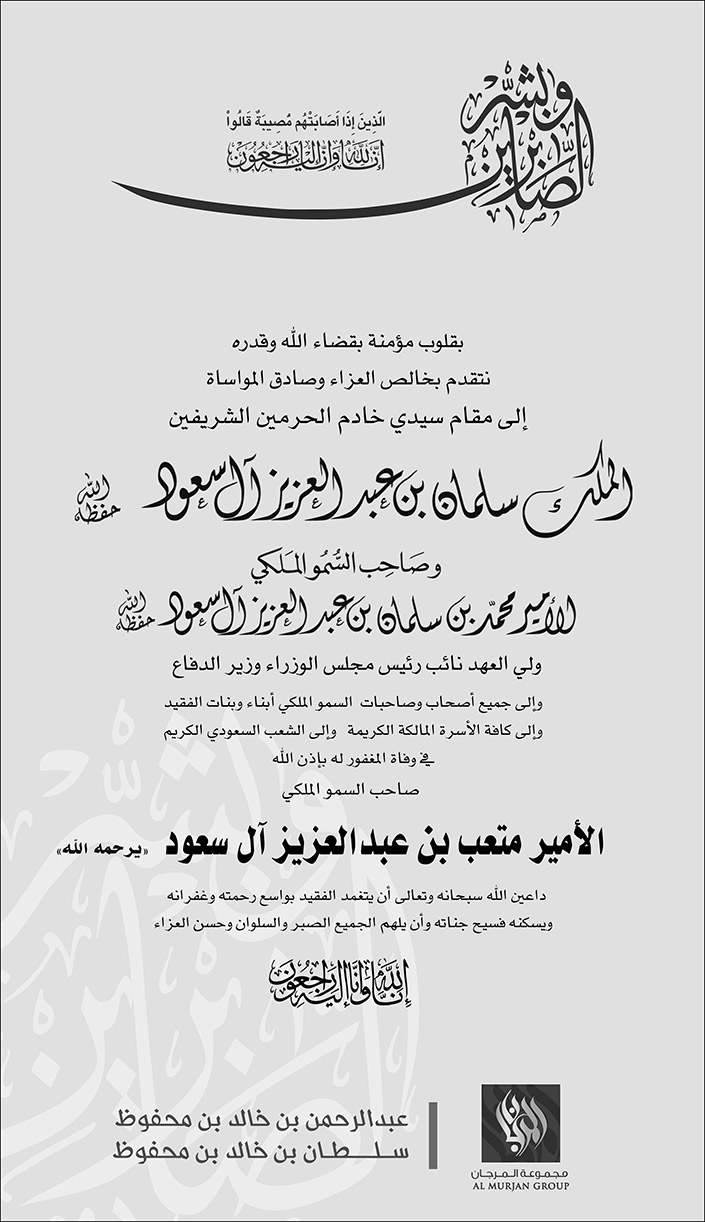 وبشر
الصابرين
الَّذِينَ إِذَا أَصَابَتْهُم مُّصِيبَةٌ قَالُواْ
إنا لله وإنا إليه راجعون
بقلوب مؤمنة بقضاء الله وقدره
نتقدم بخالص العزاء وصادق المواساة
إلى مقام سيدي خادم الحرمين الشريفين
الملك سلمان بن عبد العزيز آل سعود حفظه الله
وصَاحِب السُّمُو المَلَكي
الأمير محمّد بن سلمان بن عبد العزيز آل سعود حفظه الله
ولي العهد نائب رئيس مجلس الوزراء وزير الدفاع
وإلى جميع أصحاب وصاحبات السمو الملكي أبناء وبنات الفقيد
وإلى كافة الأسرة المالكة الكريمة وإلى الشعب السعودي الكريم
في وفاة المغفور له بإذن الله
صاحب السمو الملكي
الأمير متعب بن عبدالعزيز آل سعود «يرحمه الله»
داعين الله سبحانه وتعالى أن يتغمد الفقيد بواسع رحمته وغفرانه
ويسكنه فسيح جناته وأن يلهم الجميع الصبر والسلوان وحسن العزاء
إنا لله وإنا إليه راجعون
عبدالرحمن بن خالد بن محفوظ
سلطان بن خالد بن محفوظ
المرجان
مجموعة المرجان
AL MURJAN GROUP